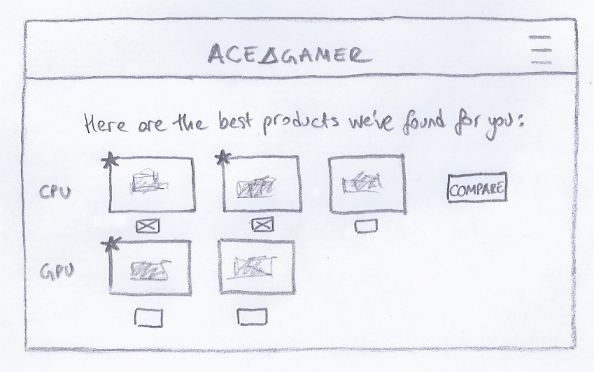 ACE∆GAMER
Here are the best products we've found for you:
CPU
COMPARE
GPU